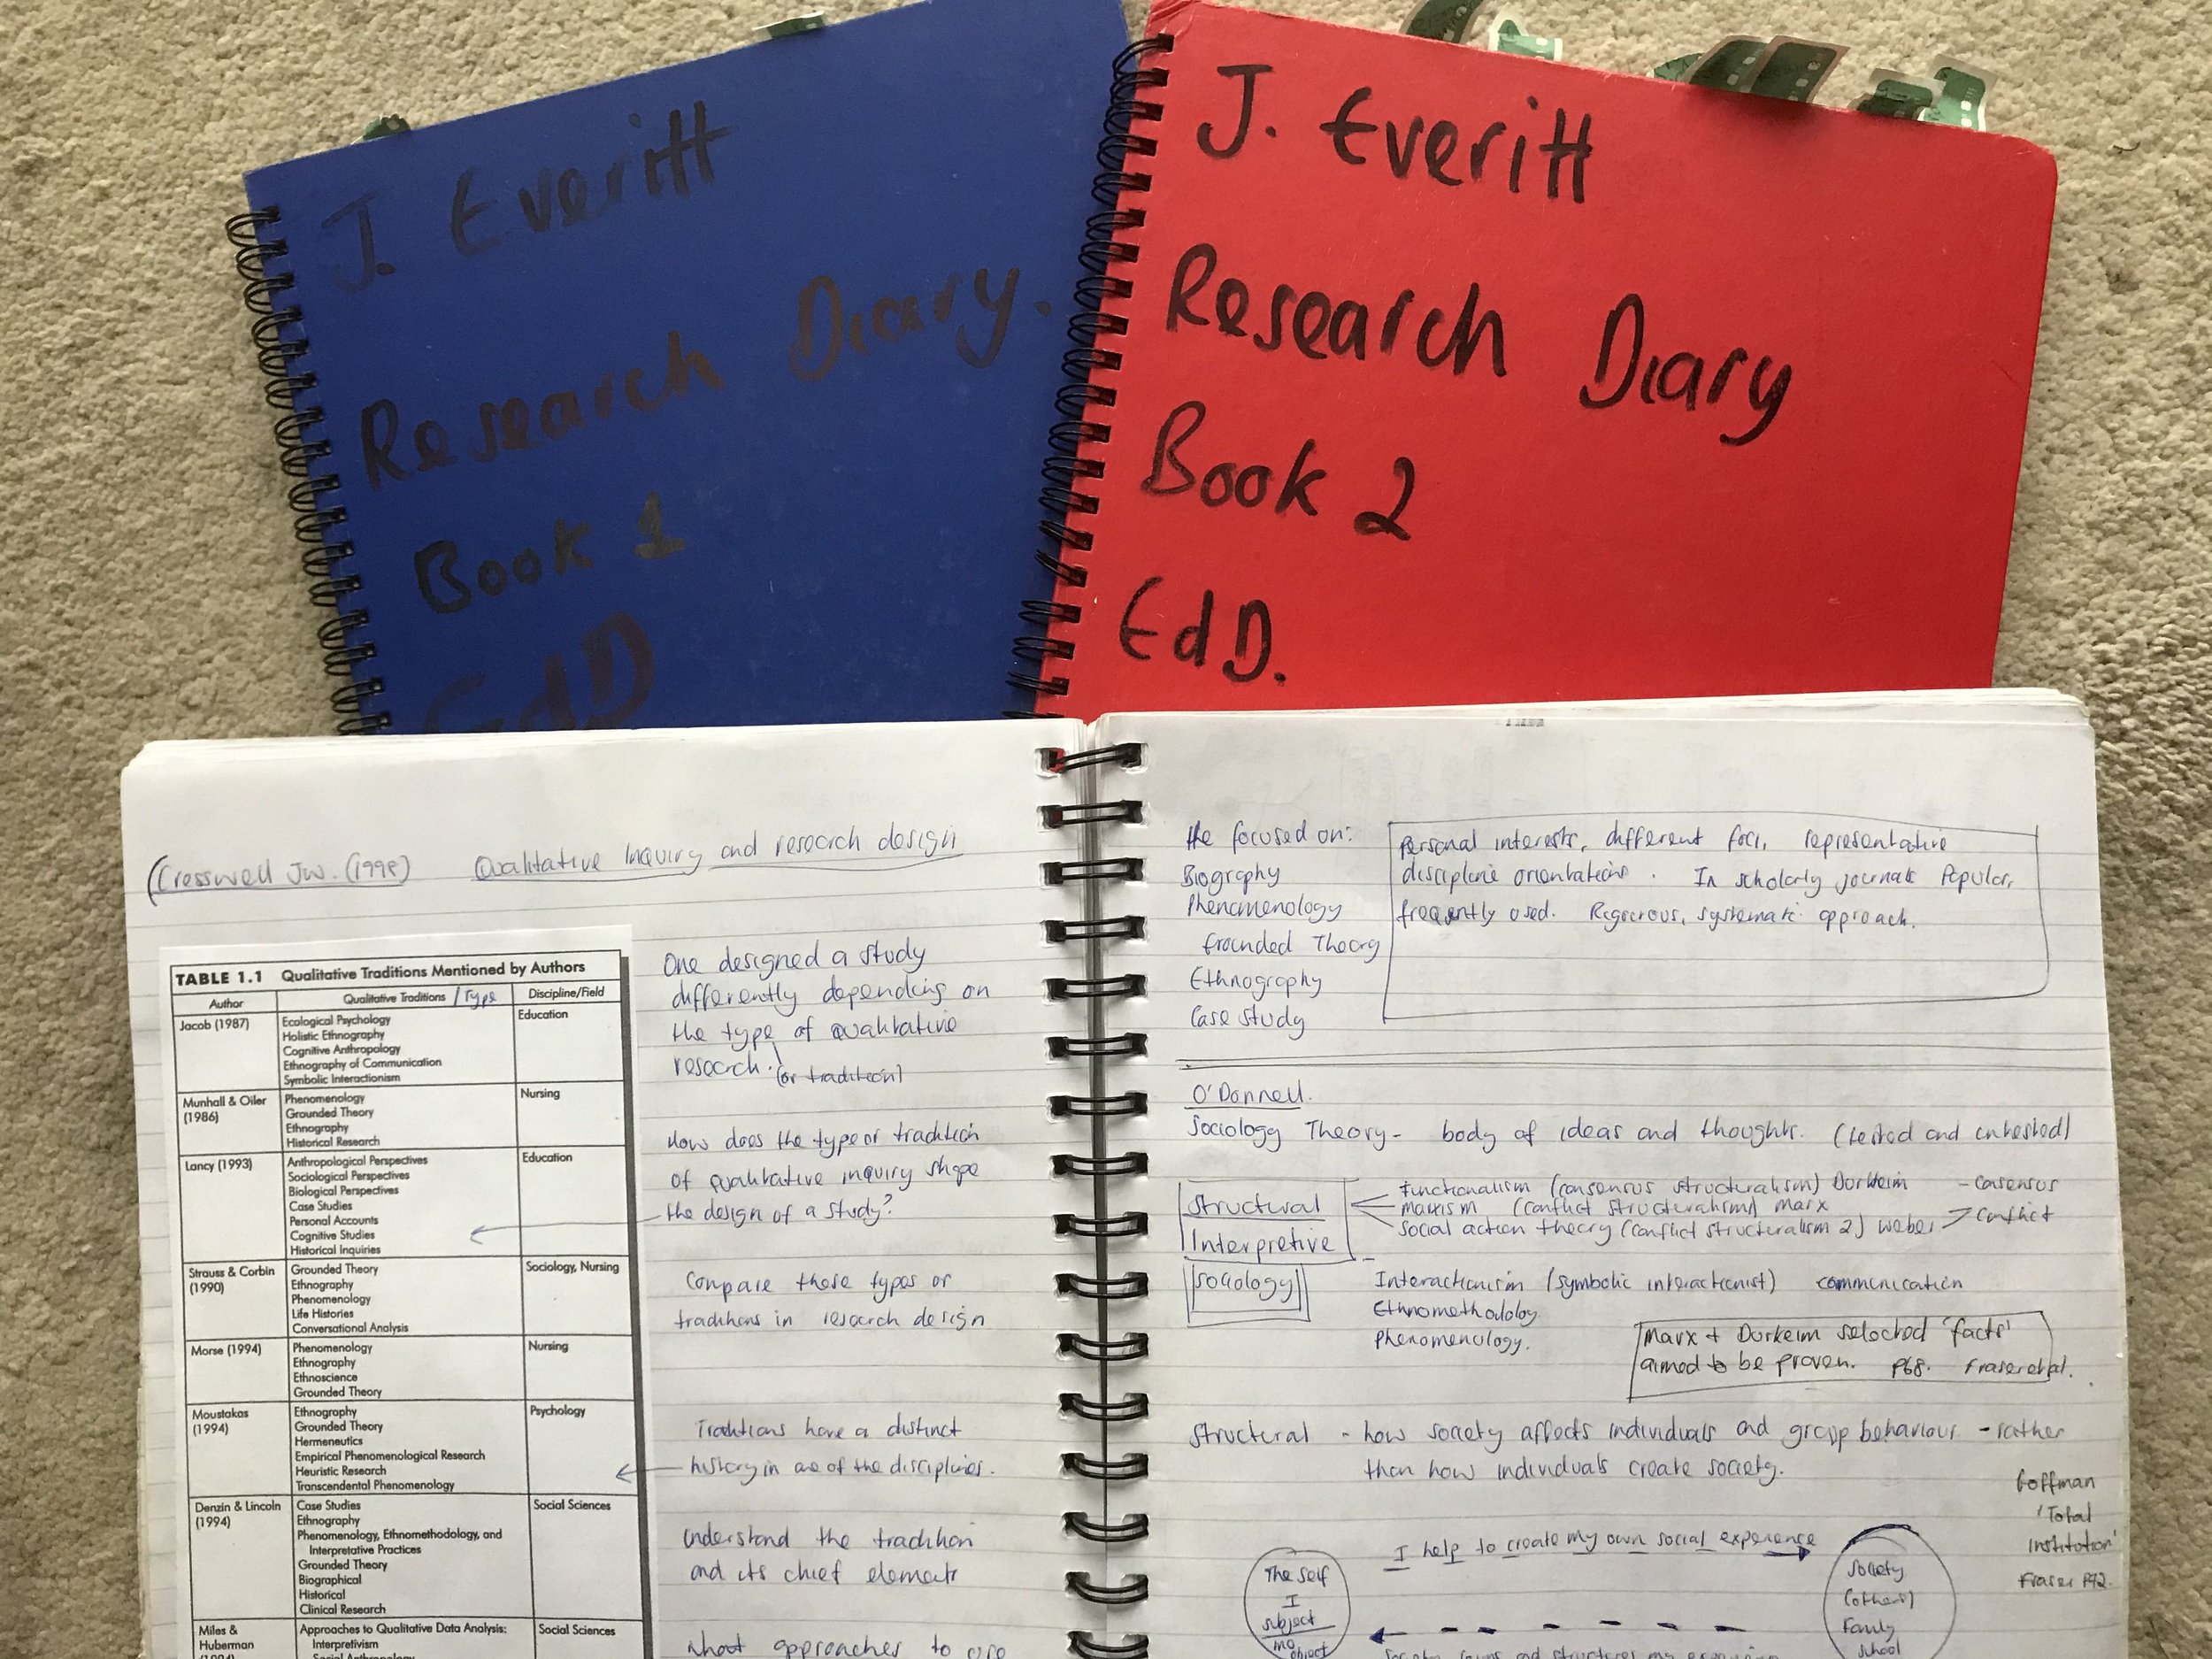 J. Everitt
Research Diary.
Book 1
EdD
J. Everitt
Research Diary
Book 2
EdD.
(Cresswell JW. (1998) Qualitative Inquiry and research design
TABLE 1.1 Qualitative Traditions Mentioned by Authors
Author Qualitative Traditions / Type Discipline/Field
Jacob (1987) Ecological Psychology Education
Holistic Ethnography
Cognitive Anthropology
Ethnography of Communication
Symbolic Interactionism
Munhall & Oiler Phenomenology Nursing
(1986) Grounded Theory
Ethnography
Historical Research
Lancy (1993) Anthropological Perspectives Education
Sociological Perspectives
Biological Perspectives
Case Studies
Personal Accounts
Cognitive Studies
Historical Inquiries
Strauss & Corbin Grounded Theory Sociology, Nursing
(1990) Ethnography
Phenomenology
Life Histories
Conversational Analysis
Morse (1994) Phenomenology Nursing
Ethnography
Ethnoscience
Grounded Theory
Moustakas Ethnography Psychology
(1994) Grounded Theory
Hermeneutics
Empirical Phenomenological Research
Heuristic Research
Transcendental Phenomenology
Denzin & Lincoln Case Studies Social Sciences
(1994) Ethnography
Phenomenology, Ethnomethodology, and
Interpretative Practices
Grounded Theory
Biographical
Historical
Clinical Research
Miles & Approaches to Qualitative Data Analysis: Social Sciences
Huberman Interpretivism
(1994) Social Anthropology
One designed a study
differently depending on
the type of qualitative
research.
(or tradition)
How does the type or tradition
of qualitative inquiry shape
the design of a study?
Compare these types or
traditions in research design
Traditions have a distinct
history in one of the disciplines.
Understand the tradition
and its chief elements
What approaches to use
He focused on:
Biography
Phenomenology
Grounded Theory
Ethnography
Case Study
Personal interests, different foci, representative
discipline orientations. In scholarly journals Popular,
frequently used. Rigorous, systematic approach.
O'Donnell.
Sociology Theory- body of ideas and thoughts. (tested and untested)
Structural
Interpretive
Sociology
Functionalism (consensus structuralism) Durkeim - consensus
Marxism (conflict structuralism) Marx
Social action theory (conflict structuralism 2) Weber > conflict
Interactionism (symbolic interactionist) communication
Ethnomethodology
Phenomenology.
Marx + Durkeim selected 'facts'
aimed to be proven. P68. Fraser et al.
Structural - how society affects individuals and group behaviour - rather
than how individuals create society.
Goffman
'Total
Institution'
Fraser P92.
I help to create my own social experience
The self
I
subject
me
object
Society
(others)
Family
School